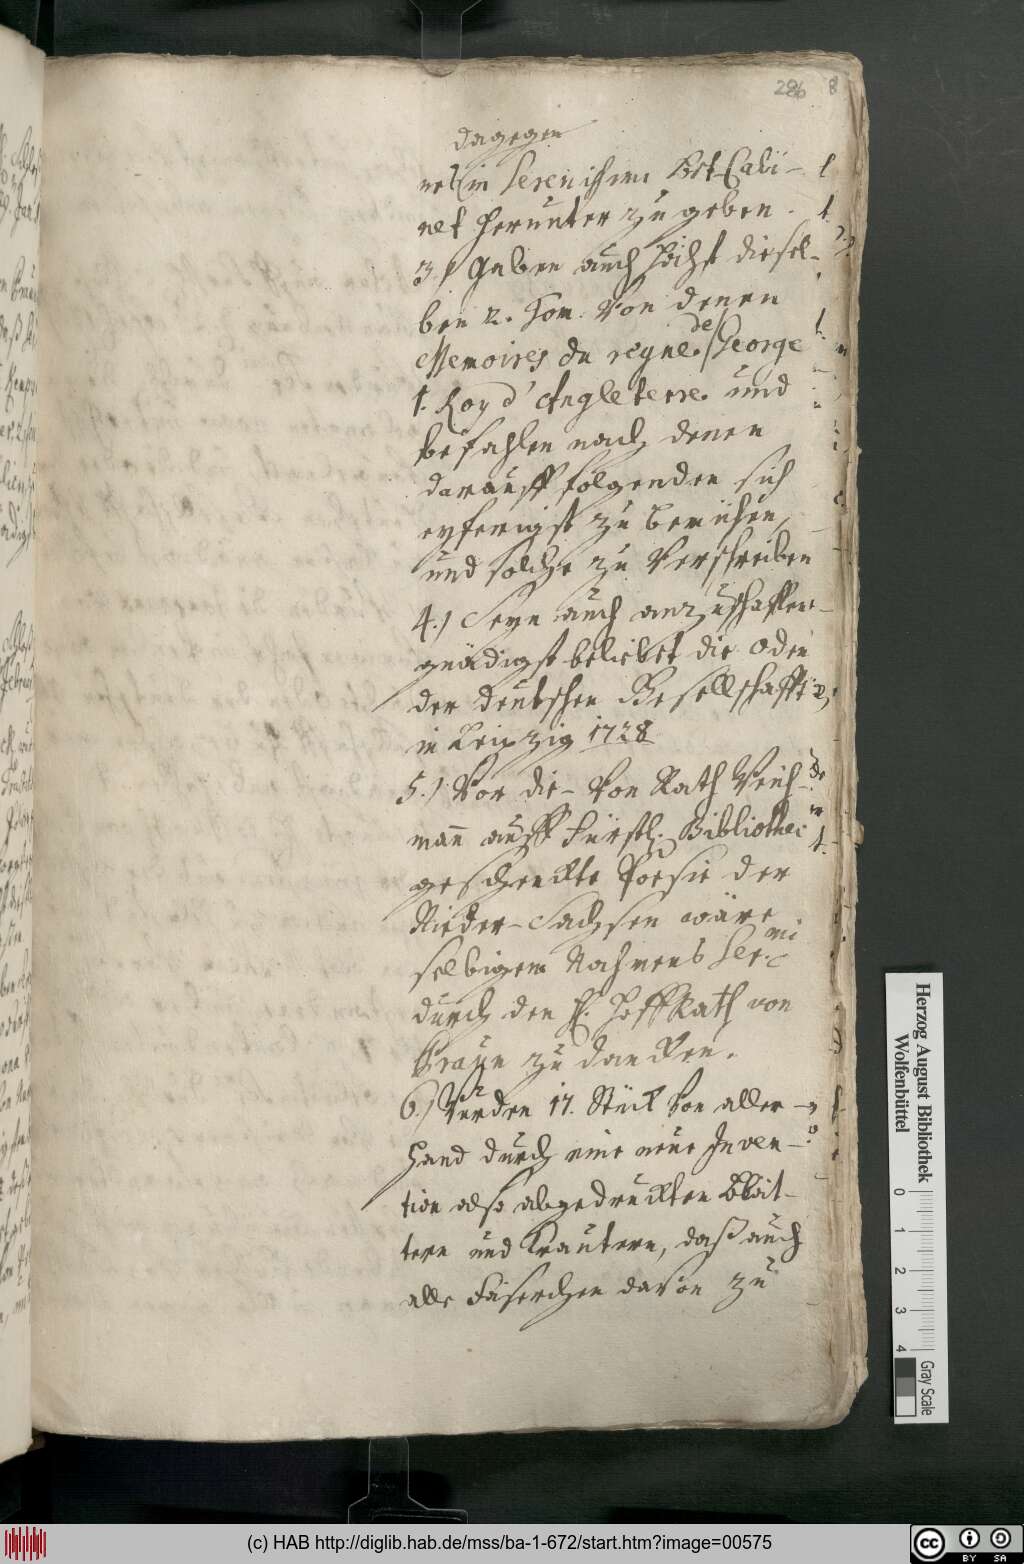 286
dagegen
in Serenissimi Bet-Cabi-
net herunter zu geben.
3.) Gaben auch Höchst diesel-
ben 2. Tom. von denen
Memoires du regne de George
1. Roy d'Angleterre und
befahlen nach denen
darauff folgenden sich
eyferigst zu bemühen,
und solche zu verschreiben
4.) Seyn auch anzuschaffen
gnädigst beliebet die Oden
der deutschen Gesellschafft
in Leipzig 1728
5.) Vor die von Rath Weich-
mann auff Fürstl. Bibliothec
geschenckte Poesie der
Nieder-Sachsen wäre
selbigem Nahmens Ser.mi
durch den H. HoffRath von
Praun zu dancken.
6.) Wurden 17. Stück von aller-
hand durch eine neue Inven-
tion also abgedruckten Blät-
tern und Kräutern, daß auch
alle Fäserchen davon zu
Herzog August Bibliothek
Wolfenbüttel
0
1
2
3
4
Gray Scale
(c) HAB http://diglib.hab.de/mss/ba-1-672/start.htm?image=00575
cc
BY SA